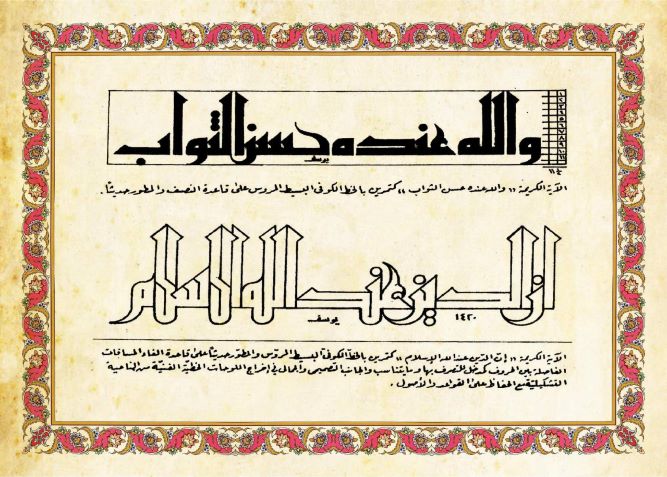 والله عنده حسن الثواب
يوسف
١١ ½
الآية الكريمة « والله عنده حسن الثواب » كتمرين بالخط الكوفي البسيط المروس على قاعدة النصف والمطور حديثاً .
ان الدين عند الله الاسلام
يوسف ١٤٢٠
الآية الكريمة « إن الدين عند الله الإسلام » كتمرين بالخط الكوفي البسيط المروس والمطور حديثاً على قاعدة الغاء المسافات
الفاصلة بين الحروف كمدخل للتصرف بها وما يتناسب والجانب التصميمي والجمالي في إخراج اللوحات الخطية الفنية من الناحية
التشكيلية مع الحفاظ على القواعد والأصول .